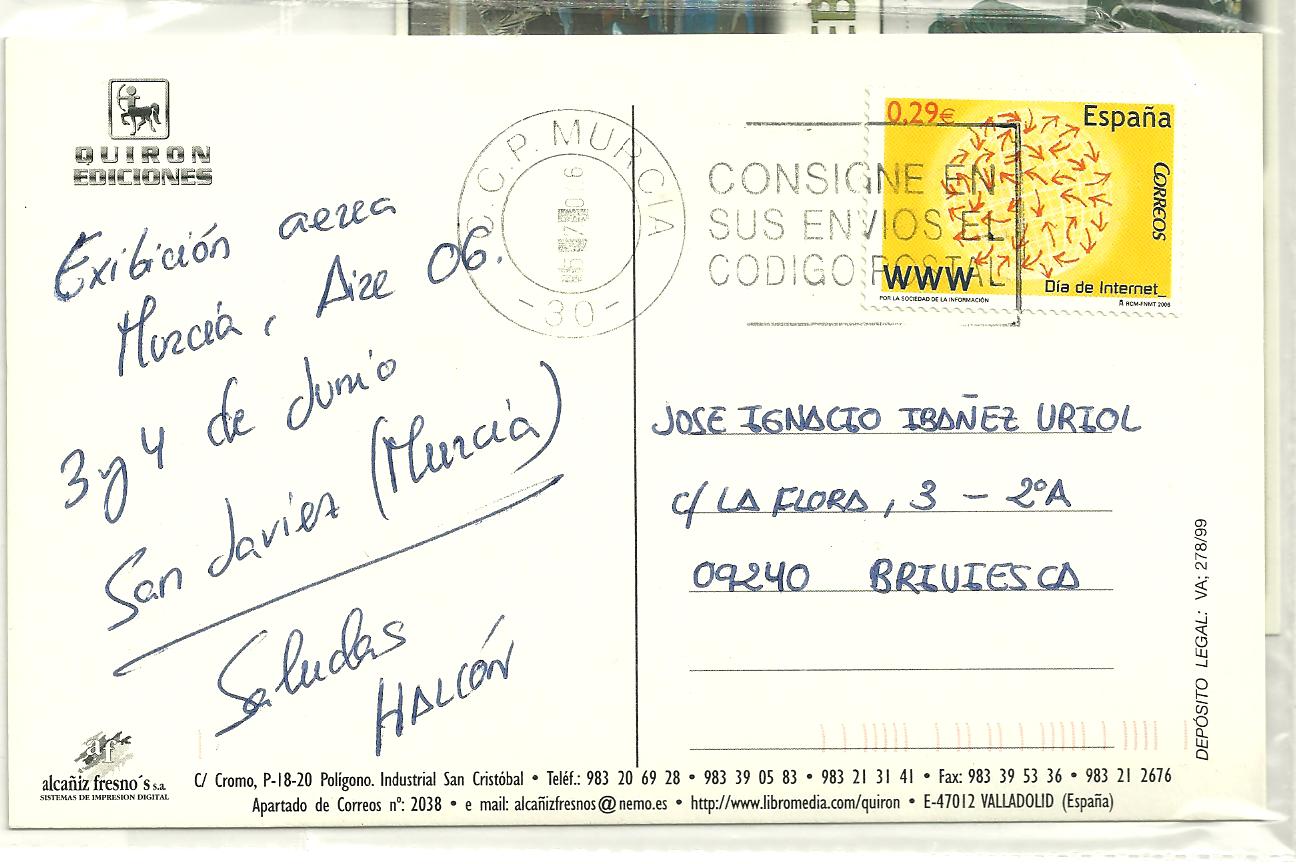 QUIRON
EDICIONES
Exibición aerea
Murcia, Aire 06.
3 y 4 de Junio
San Javier (Murcia)
Saludos
HALCÓN
C.C.P. MURCIA
-30-
CONSIGNE EN
SUS ENVIOS EL
CODIGO POSTAL
0,29€ España
CORREOS
WWW
Día de Internet_
POR LA SOCIEDAD DE LA INFORMACIÓN
RCM-FNMT 2006
JOSE IGNACIO IBAÑEZ URIOL
C/ LA FLORA, 3 - 2º A
09240 BRIVIESCA
DEPÓSITO LEGAL: VA; 278/99
af
alcañiz fresno´s s.a.
SISTEMAS DE IMPRESION DIGITAL
C/ Cromo, P-18-20 Polígono. Industrial San Cristóbal • Teléf.: 983 20 69 28 • 983 39 05 83 • 983 21 31 41 • Fax: 983 39 53 36 • 983 21 2676
Apartado de Correos nº: 2038 • e mail: alcañizfresnos@nemo.es • http://www.libromedia.com/quiron • E-47012 VALLADOLID (España)